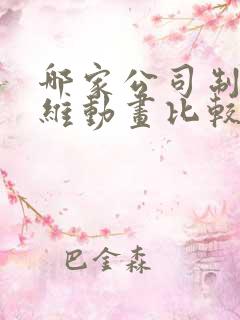 哪家公司制
維動畫比較
巴金森